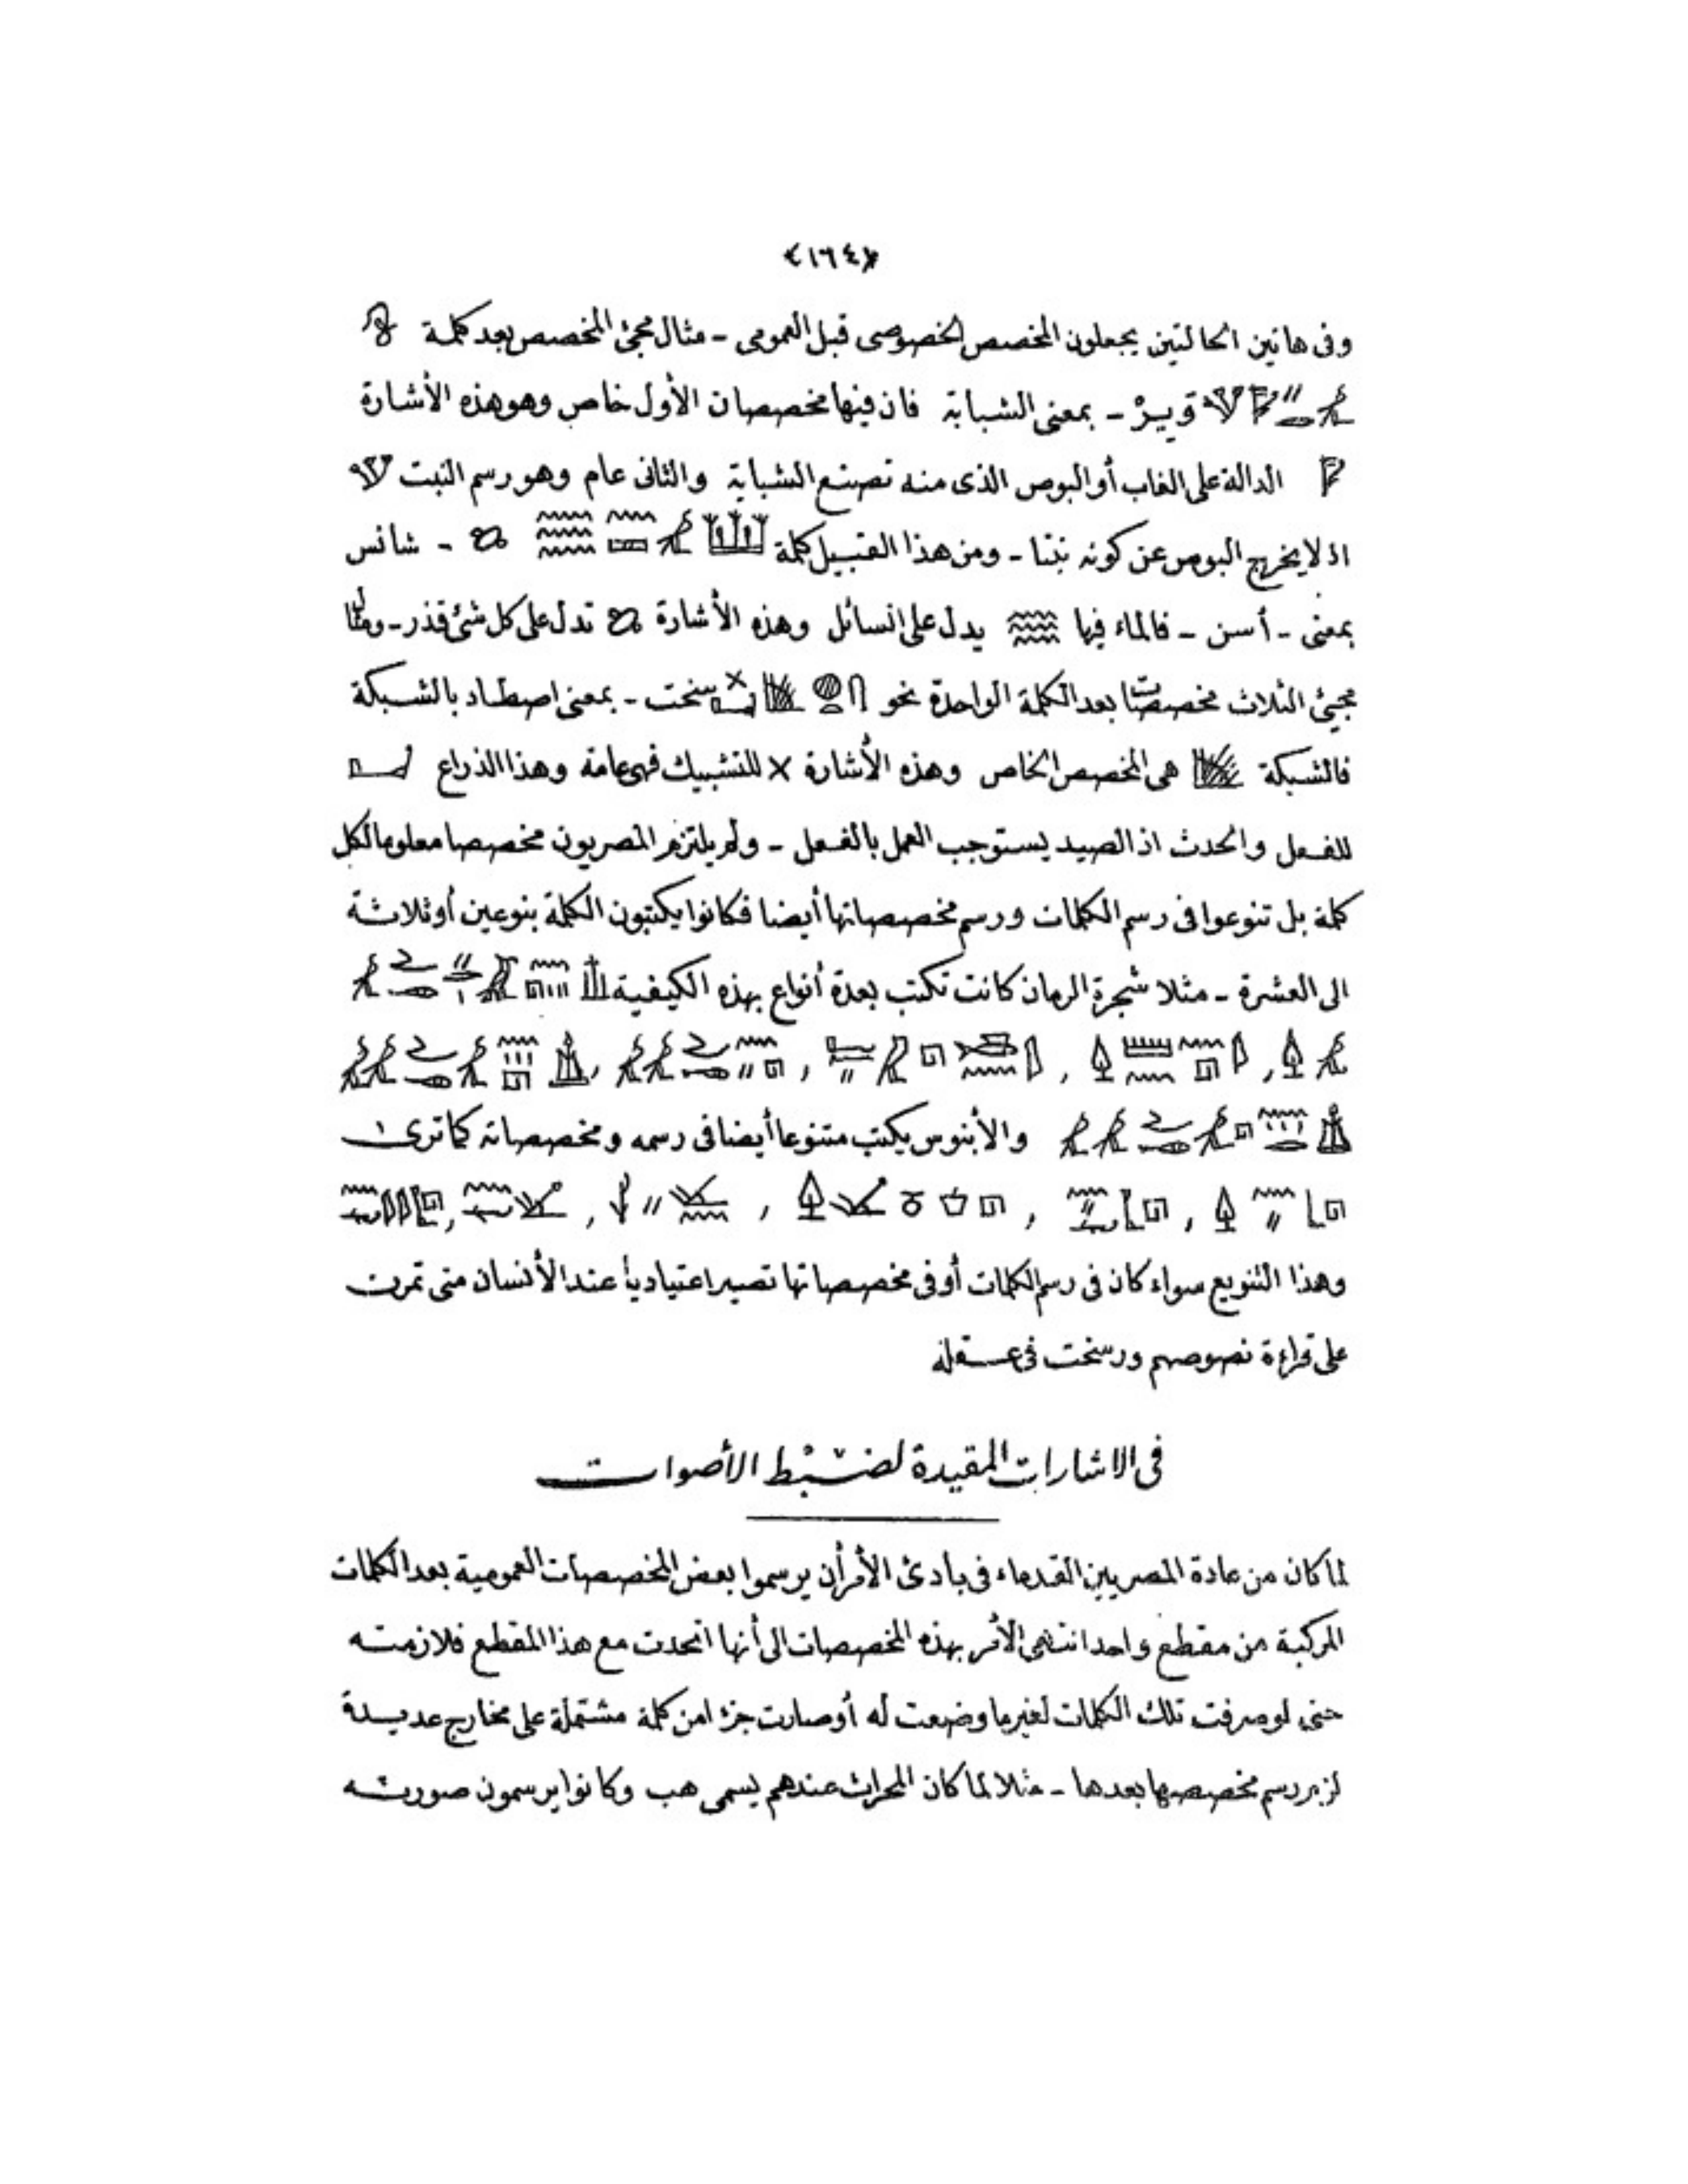 ﴿١٦٤﴾
وفى هاتين الحالتين يجعلون المخصص الخصوصى قبل العمومى - مثال مجئ المخصص بعد كلمة
قويرْ - بمعنى الشبابة فان فيها مخصصان الأول خاص وهو هذه الأشارة
الدالة على الغاب أو البوص الذى منه تصنع الشبابة والثانى عام وهو رسم النبت
اذ لا يخرج البوص عن كونه نبتا - ومن هذا القبيل كلمة - شانس
بمعنى - أسن - فالماء فيها يدل على السائل وهذه الأشارة تدل على كل شئ قذر - ومثال
مجيئ الثلاث مخصصات بعد الكلمة الواحدة نحو سخت - بمعنى اصطاد بالشبكة
فالشبكة هى المخصص الخاص وهذه الأشارة × للتشبيك فهى عامة وهذا الذراع
للفعل والحدث اذ الصيد يستوجب العمل بالفعل - ولم يلتزم المصريون مخصصا معلوما لكل
كلمة بل تنوعوا فى رسم الكلمات ورسم مخصصاتها أيضا فكانوا يكتبون الكلمة بنوعين أو ثلاثة
الى العشرة - مثلا شجرة الرمان كانت تكتب بعدة أنواع بهذه الكيفية
والأبنوس يكتب متنوعا أيضا فى رسمه ومخصصاته كما ترى
وهذا التنويع سواء كان فى رسم الكلمات أو فى مخصصاتها تصير اعتياديا عند الأنسان متى تمرن
على قراءة نصوصهم ورسخت فى عقله
فى الاشارات المقيدة لضبْط الأصوات
لما كان من عادة المصريين القدماء فى بادئ الأمر أن يرسموا بعض المخصصات العمومية بعد الكلمات
المركبة من مقطع واحد انتهى الأمر بهذه المخصصات الى أنها اتحدت مع هذا المقطع فلازمته
حتى لو صرفت تلك الكلمات لغير ما وضعت له أو صارت جزءا من كلمة مشتملة على مخارج عديدة
لزم رسم مخصصها بعدها - مثلا لما كان المحراث عندهم يسمى هب وكانوا يرسمون صورته